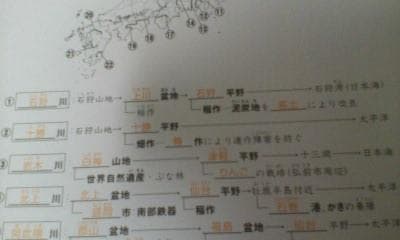 ⑳ ⑫ ⑪
㉑ ⑲ ⑱ ⑰ ⑭
㉒
① 石狩 川 石狩山地 → 上川 盆地 → 石狩 平野 → 石狩湾(日本海)
稲作 稲作 泥炭地を 客土 により改良
② 十勝 川 石狩山地 → 十勝 平野 → 太平洋
畑作 作により連作障害を防ぐ
③ 岩木 川 白神 山地 → 津軽 平野 → 十三湖 → 日本海
世界自然遺産・ぶな林 りんご の栽培(弘前市周辺)
北上 川 北上 盆地 → 仙台 平野 → 牡鹿半島付近 → 太平洋
盛岡 市 南部鉄器 稲作 石巻 港、かきの養殖
阿武隈 川 郡山 盆地 福島 盆地 仙台 平野 → 太平洋